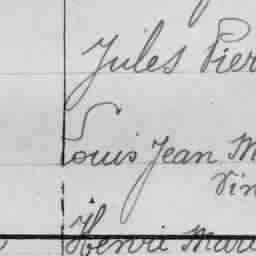 Jules Pier
Louis Jean M
Vin
Henri Mare